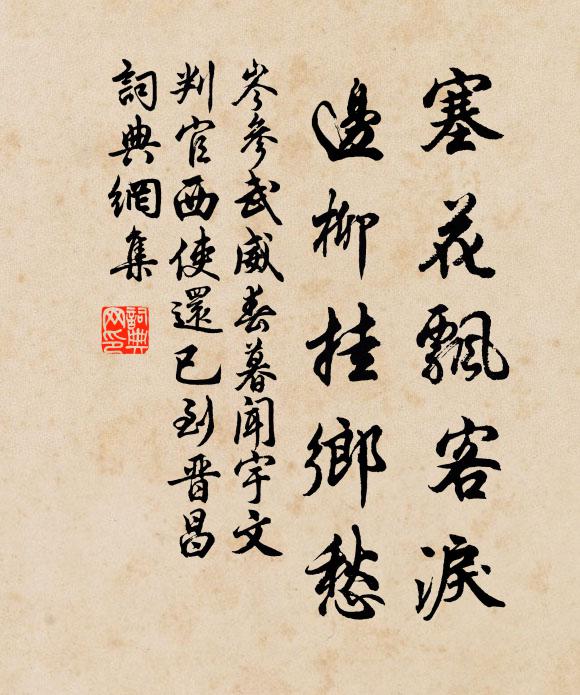 塞花飄客淚
邊柳挂鄉愁
岑參武威春暮聞宇文
判官西使還已到晉昌
詞典網集
詞典
网印